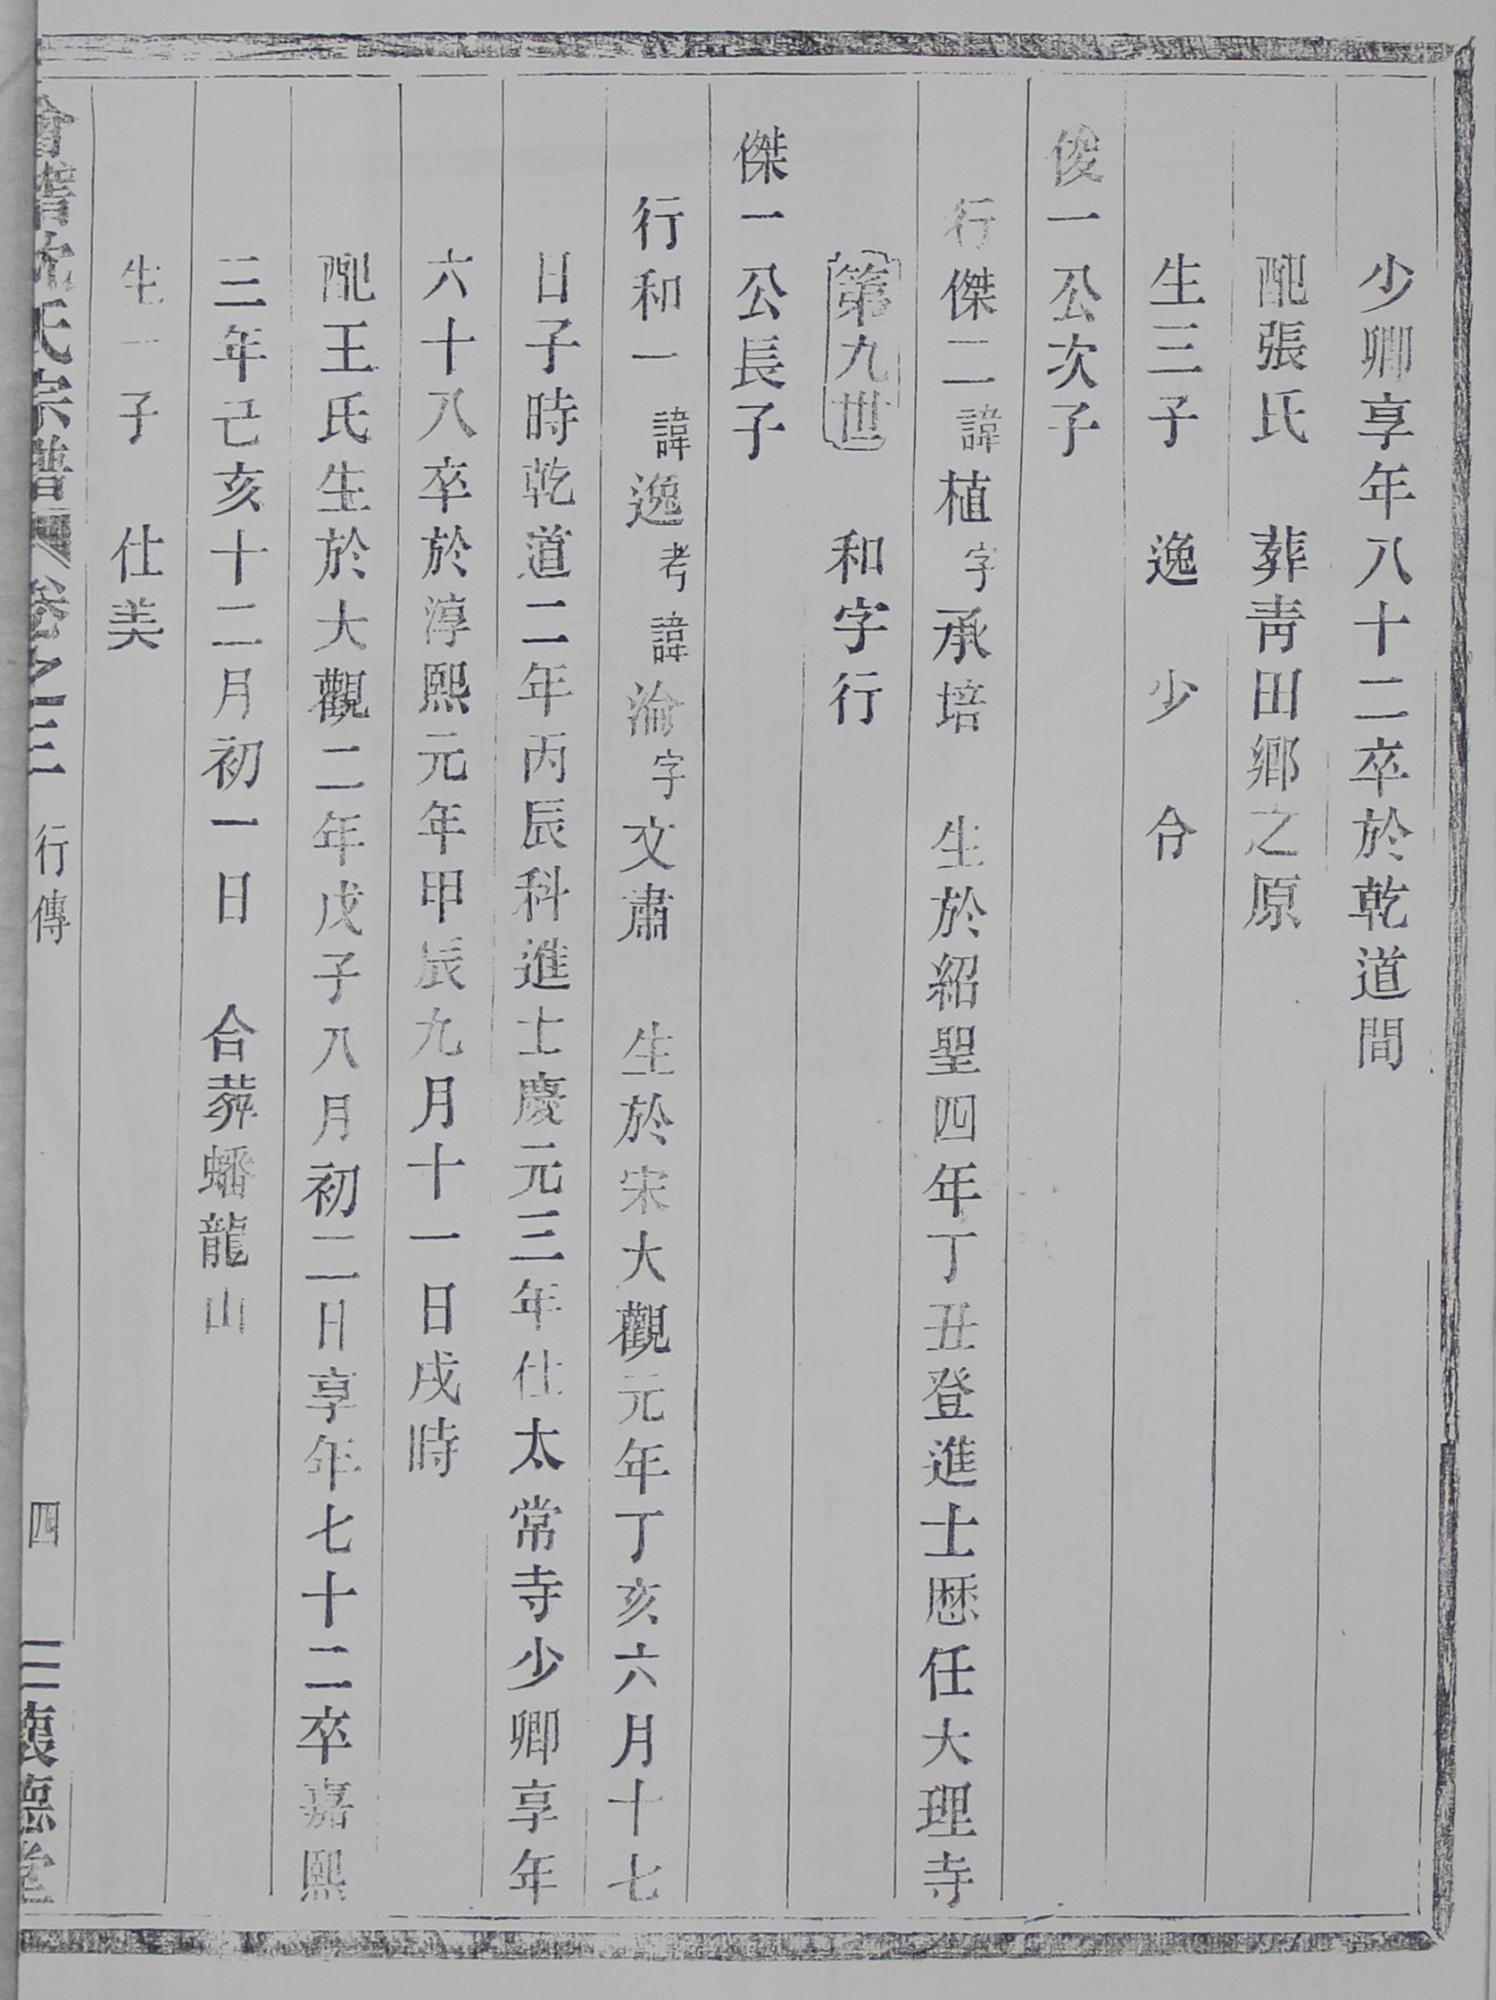 少卿享年八十二卒於乾道間
配張氏　葬靑田鄉之原
生三子　逸　少　令
俊一公次子
行傑二諱植字承培　生於紹聖四年丁丑登進士歷任大理寺
第九世　和字行
傑一公長子
行和一諱逸考諱淪字文肅　生於宋大觀元年丁亥六月十七
日子時乾道二年丙辰科進士慶元三年仕太常寺少卿享年
六十八卒於淳熙元年甲辰九月十一日戌時
配王氏生於大觀二年戊子八月初二日享年七十二卒嘉熙
三年己亥十二月初一日　合葬蟠龍山
生一子　仕美
會稽沈氏宗譜　卷之三　行傳　四　三褱德堂